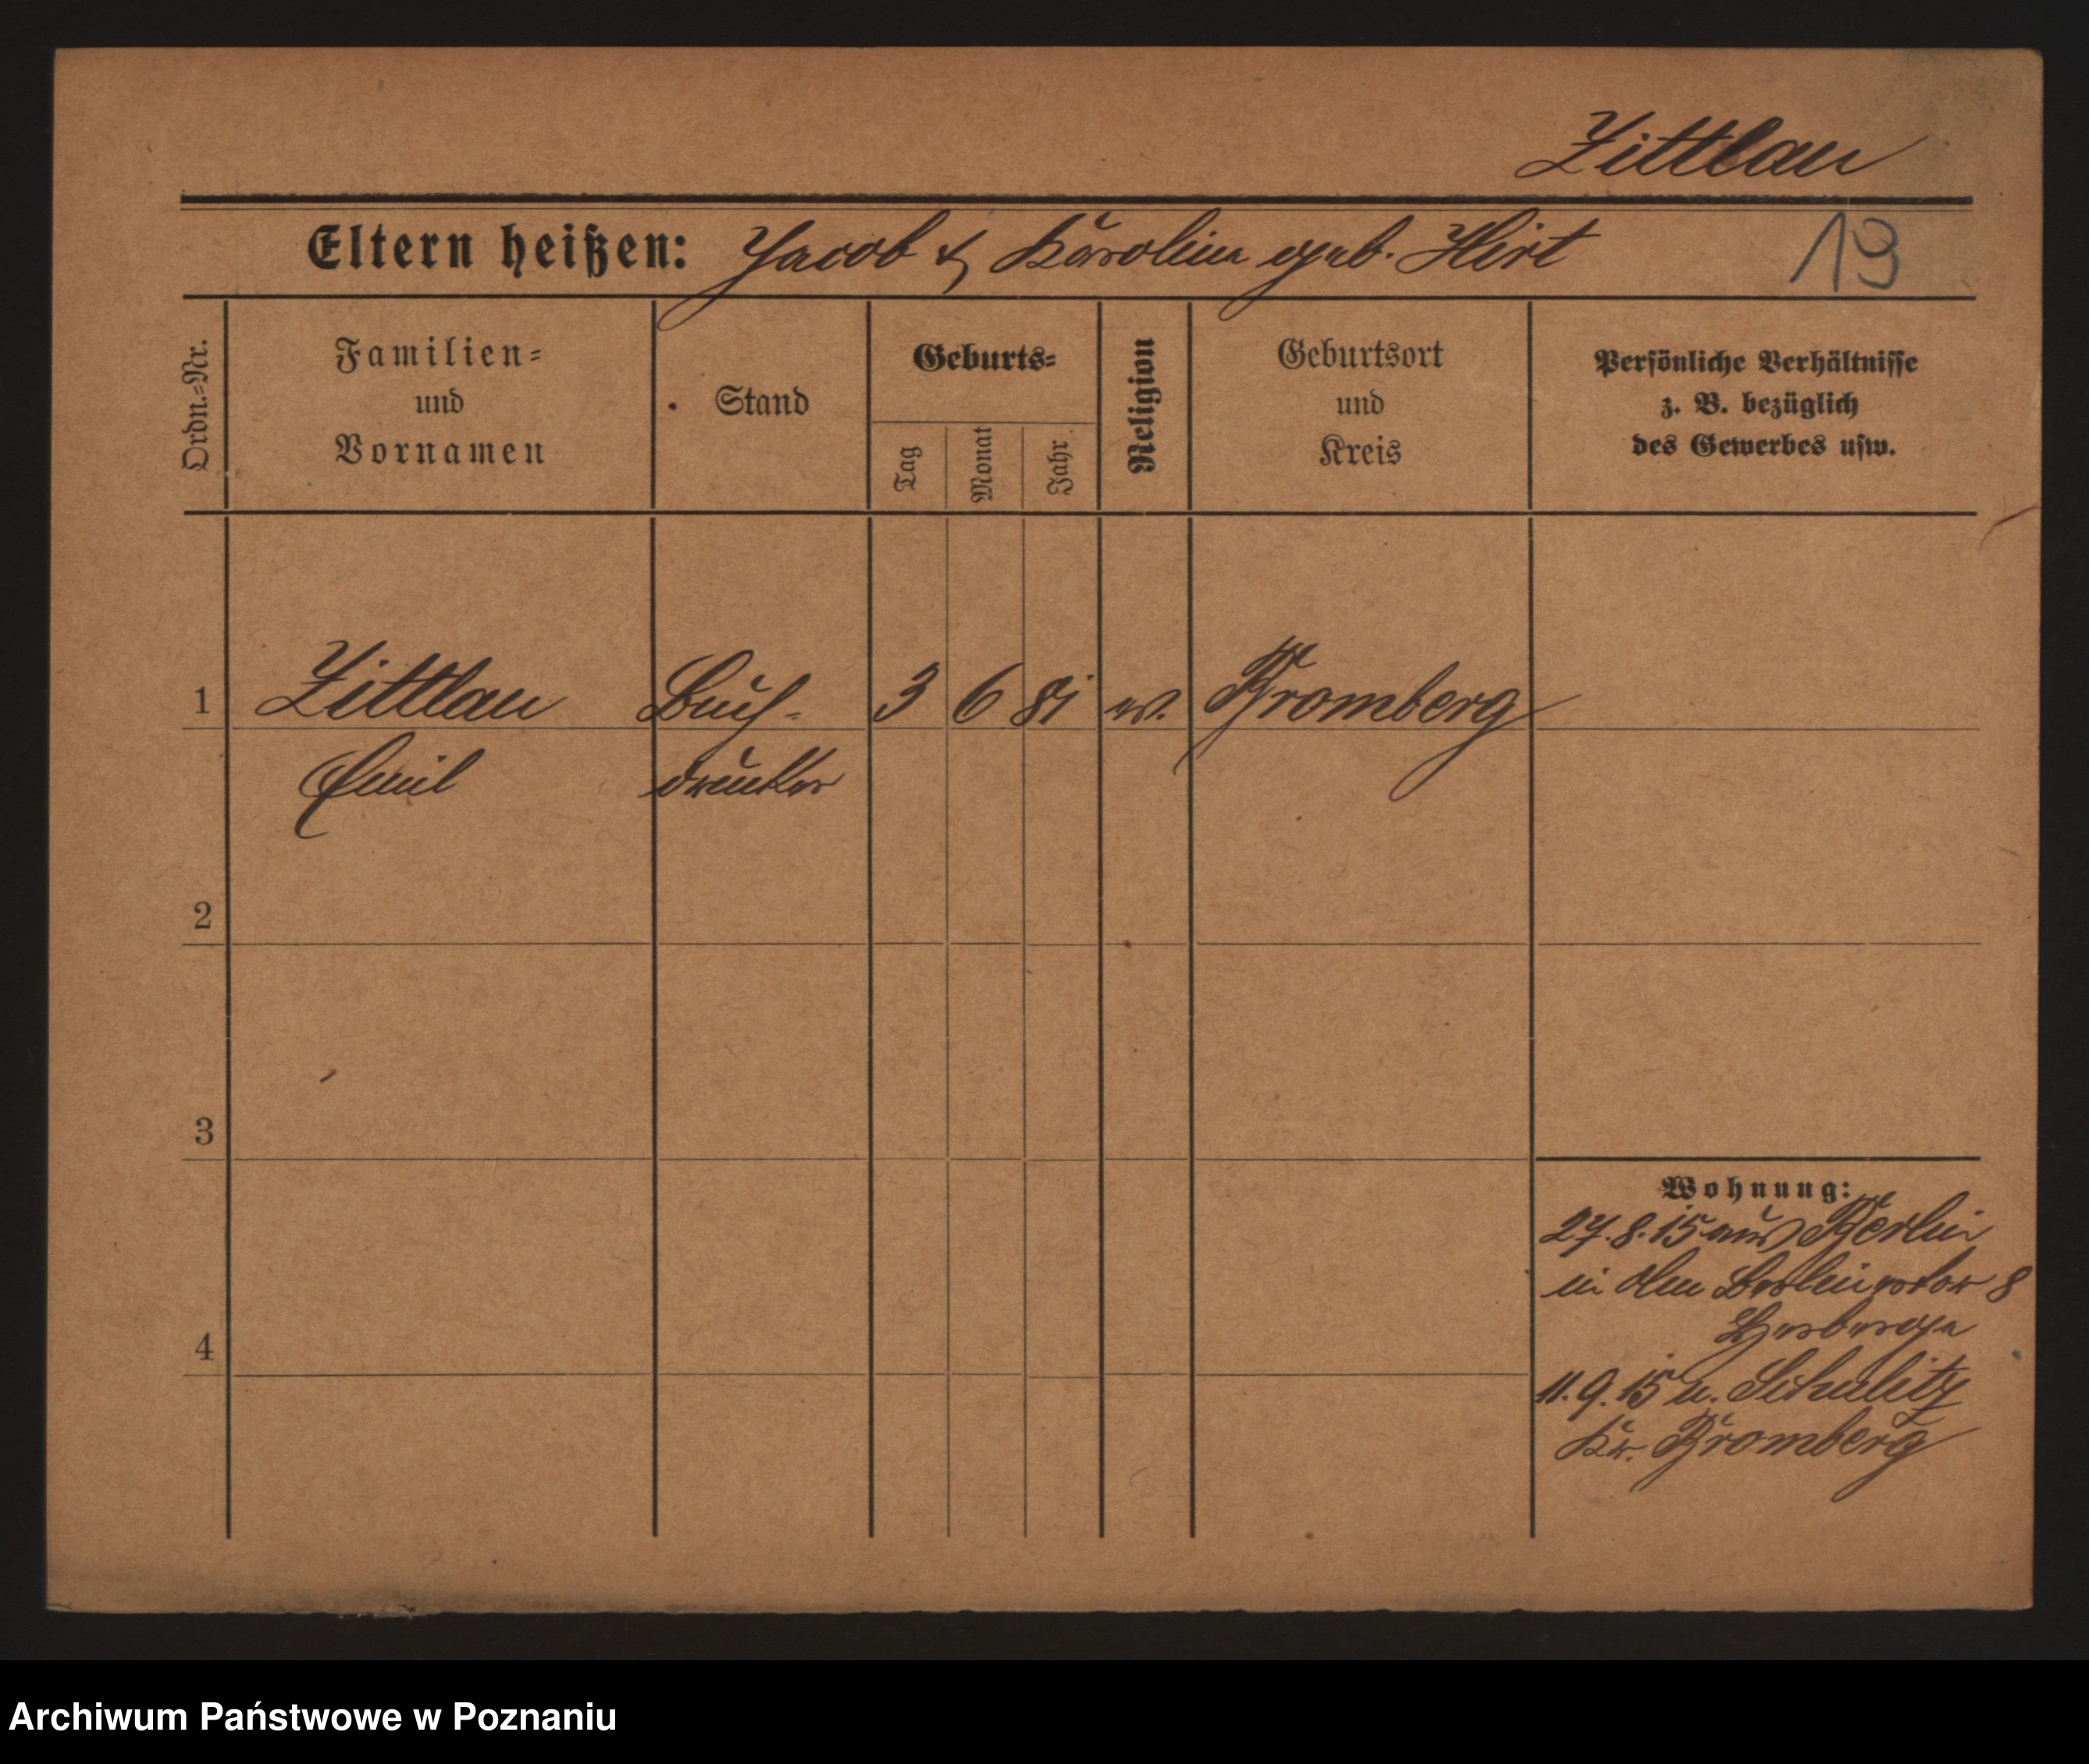 Zittlau
Eltern heißen: Jacob & Karolina geb. Hirt
19
Ordn.-Nr.
Familien-
und
Vornamen
Stand
Geburts-
Tag
Monat
Jahr
Religion
Geburtsort
und
Kreis
Persönliche Verhältnisse
z. B. bezüglich
des Gewerbes usw.
1 Zittlau Buch- 3 6 81 ev. Bromberg
Emil drucker
2
3
4
Wohnung:
27.8.15 aus Berlin
in Berlinertor 8
Herberge
11.9.15 n. Schulitz
Kr. Bromberg
Archiwum Państwowe w Poznaniu